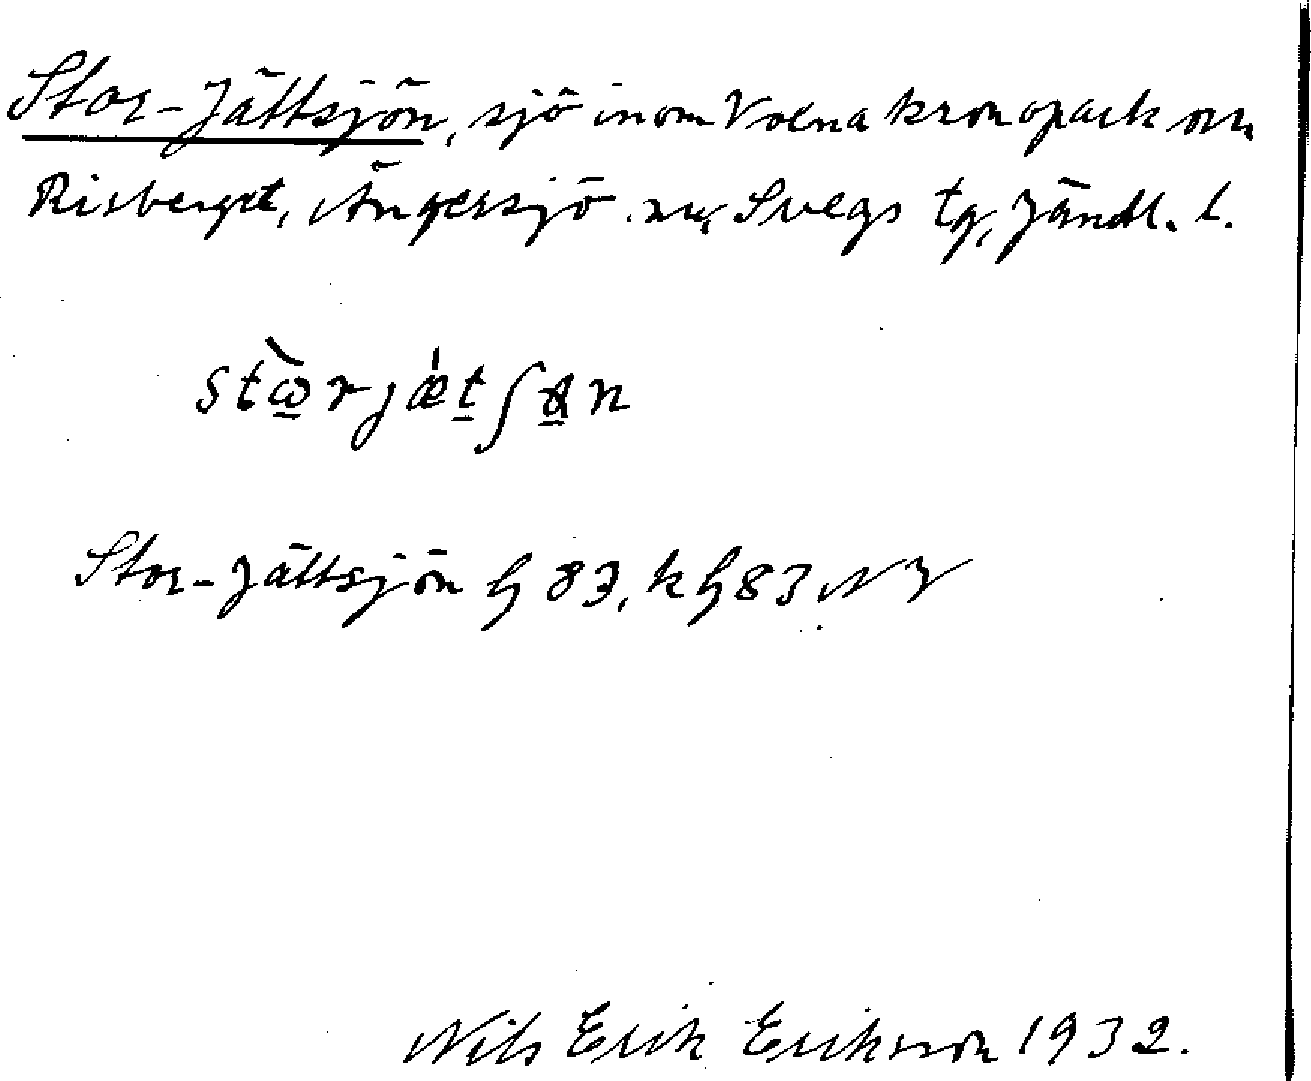 Stor-Jättsjön, sjö inom Voxna kronopark om
Risberget, Ängersjö sn, Svegs tg, Jämtl. l.
Stor-Jättsjön h 83, k h 83 NV
Nils Erik Eriksson 1932.